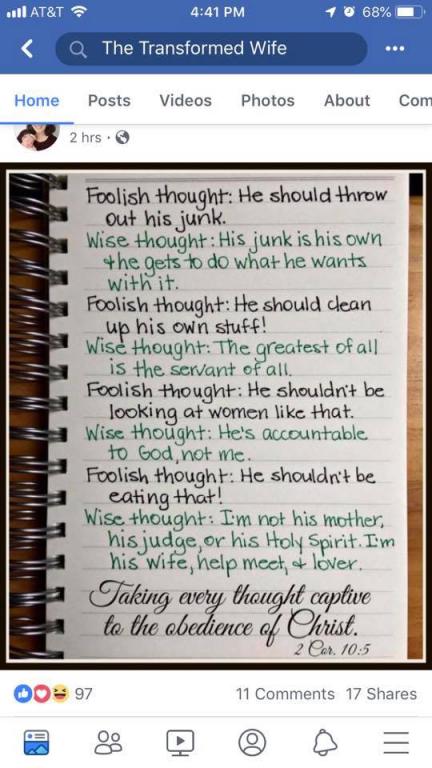 AT&T 4:41 PM 68%
The Transformed Wife
Home Posts Videos Photos About Com
2 hrs ·
Foolish thought: He should throw
out his junk.
Wise thought: His junk is his own
& he gets to do what he wants
with it.
Foolish thought: He should clean
up his own stuff!
Wise thought: The greatest of all
is the servant of all.
Foolish thought: He shouldn't be
looking at women like that.
Wise thought: He's accountable
to God, not me.
Foolish thought: He shouldn't be
eating that!
Wise thought: I'm not his mother,
his judge, or his Holy Spirit. I'm
his wife, help meet, & lover.
Taking every thought captive
to the obedience of Christ.
2 Cor. 10:5
97 11 Comments 17 Shares